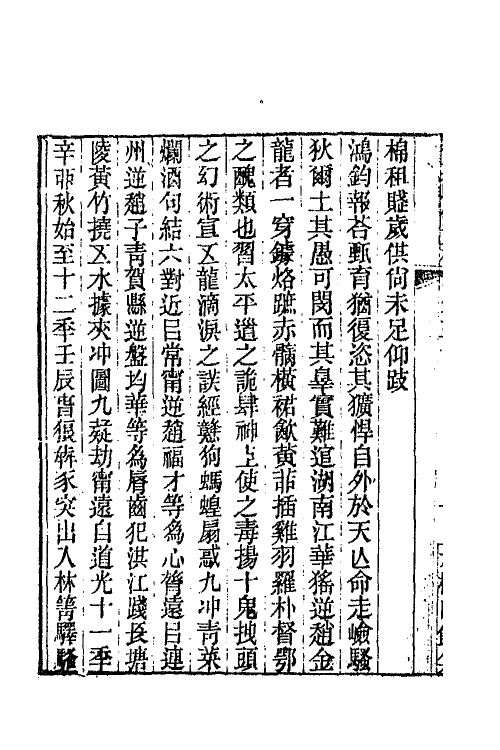 棉租賤歲供尙未足仰跂
鴻鈞報荅甄育猶復恣其獷悍自外於天亾命走嶮騷
狄爾土其愚可閔而其辠實難逭湖南江華猺逆趙金
龍者一穿鐻烙蹠赤髃橫裙歃黃茚插雞羽羅朴督鄂
之醜類也習太平道之詭肆神上使之毒揚十鬼拽頭
之幻術宣五龍滴淚之誤經虩狗螞蝗扇惑九冲靑萊
爛酒句結六對近㠯常甯逆趙福才等爲心膂遠㠯連
州逆趙子靑賀縣逆盤均華等爲脣齒犯洪江踐長塘
陵黃竹撓五水據夾冲圖九嶷劫甯遠自道光十一季
辛丣秋始至十二季壬辰旾猥犇豕突出入林箐驛騷